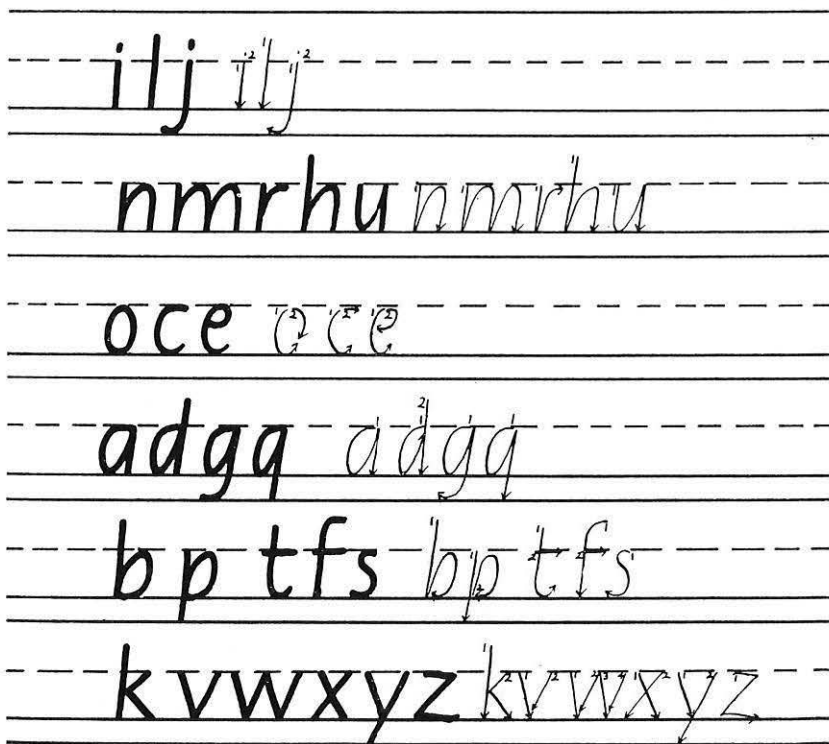 i l j i l j
n m r h u n m r h u
o c e o c e
a d g q a d g q
b p t f s b p t f s
k v w x y z k v w x y z